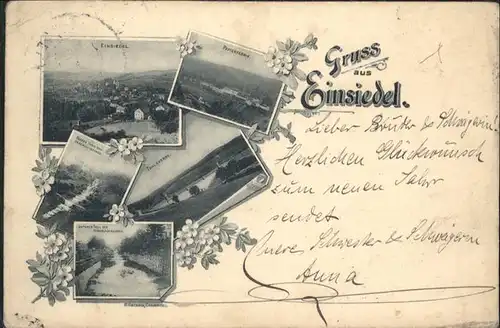 Gruss
aus
Einsiedel.
EINSIEDEL.
PAPIERFABRIK
Lieber Bruder & Schwägerin!
Herzlichen Glückwunsch
zum neuen Jahr
sendet
Eure Schwester & Schwägerin
Anna